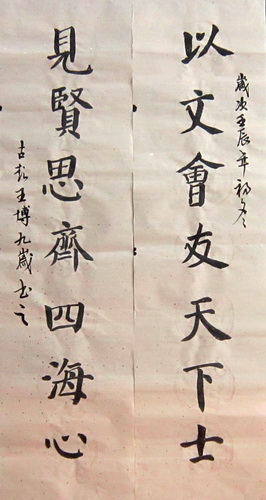 歲次壬辰年初冬
以文會友天下士
見賢思齊四海心
古彭王博九歲書之